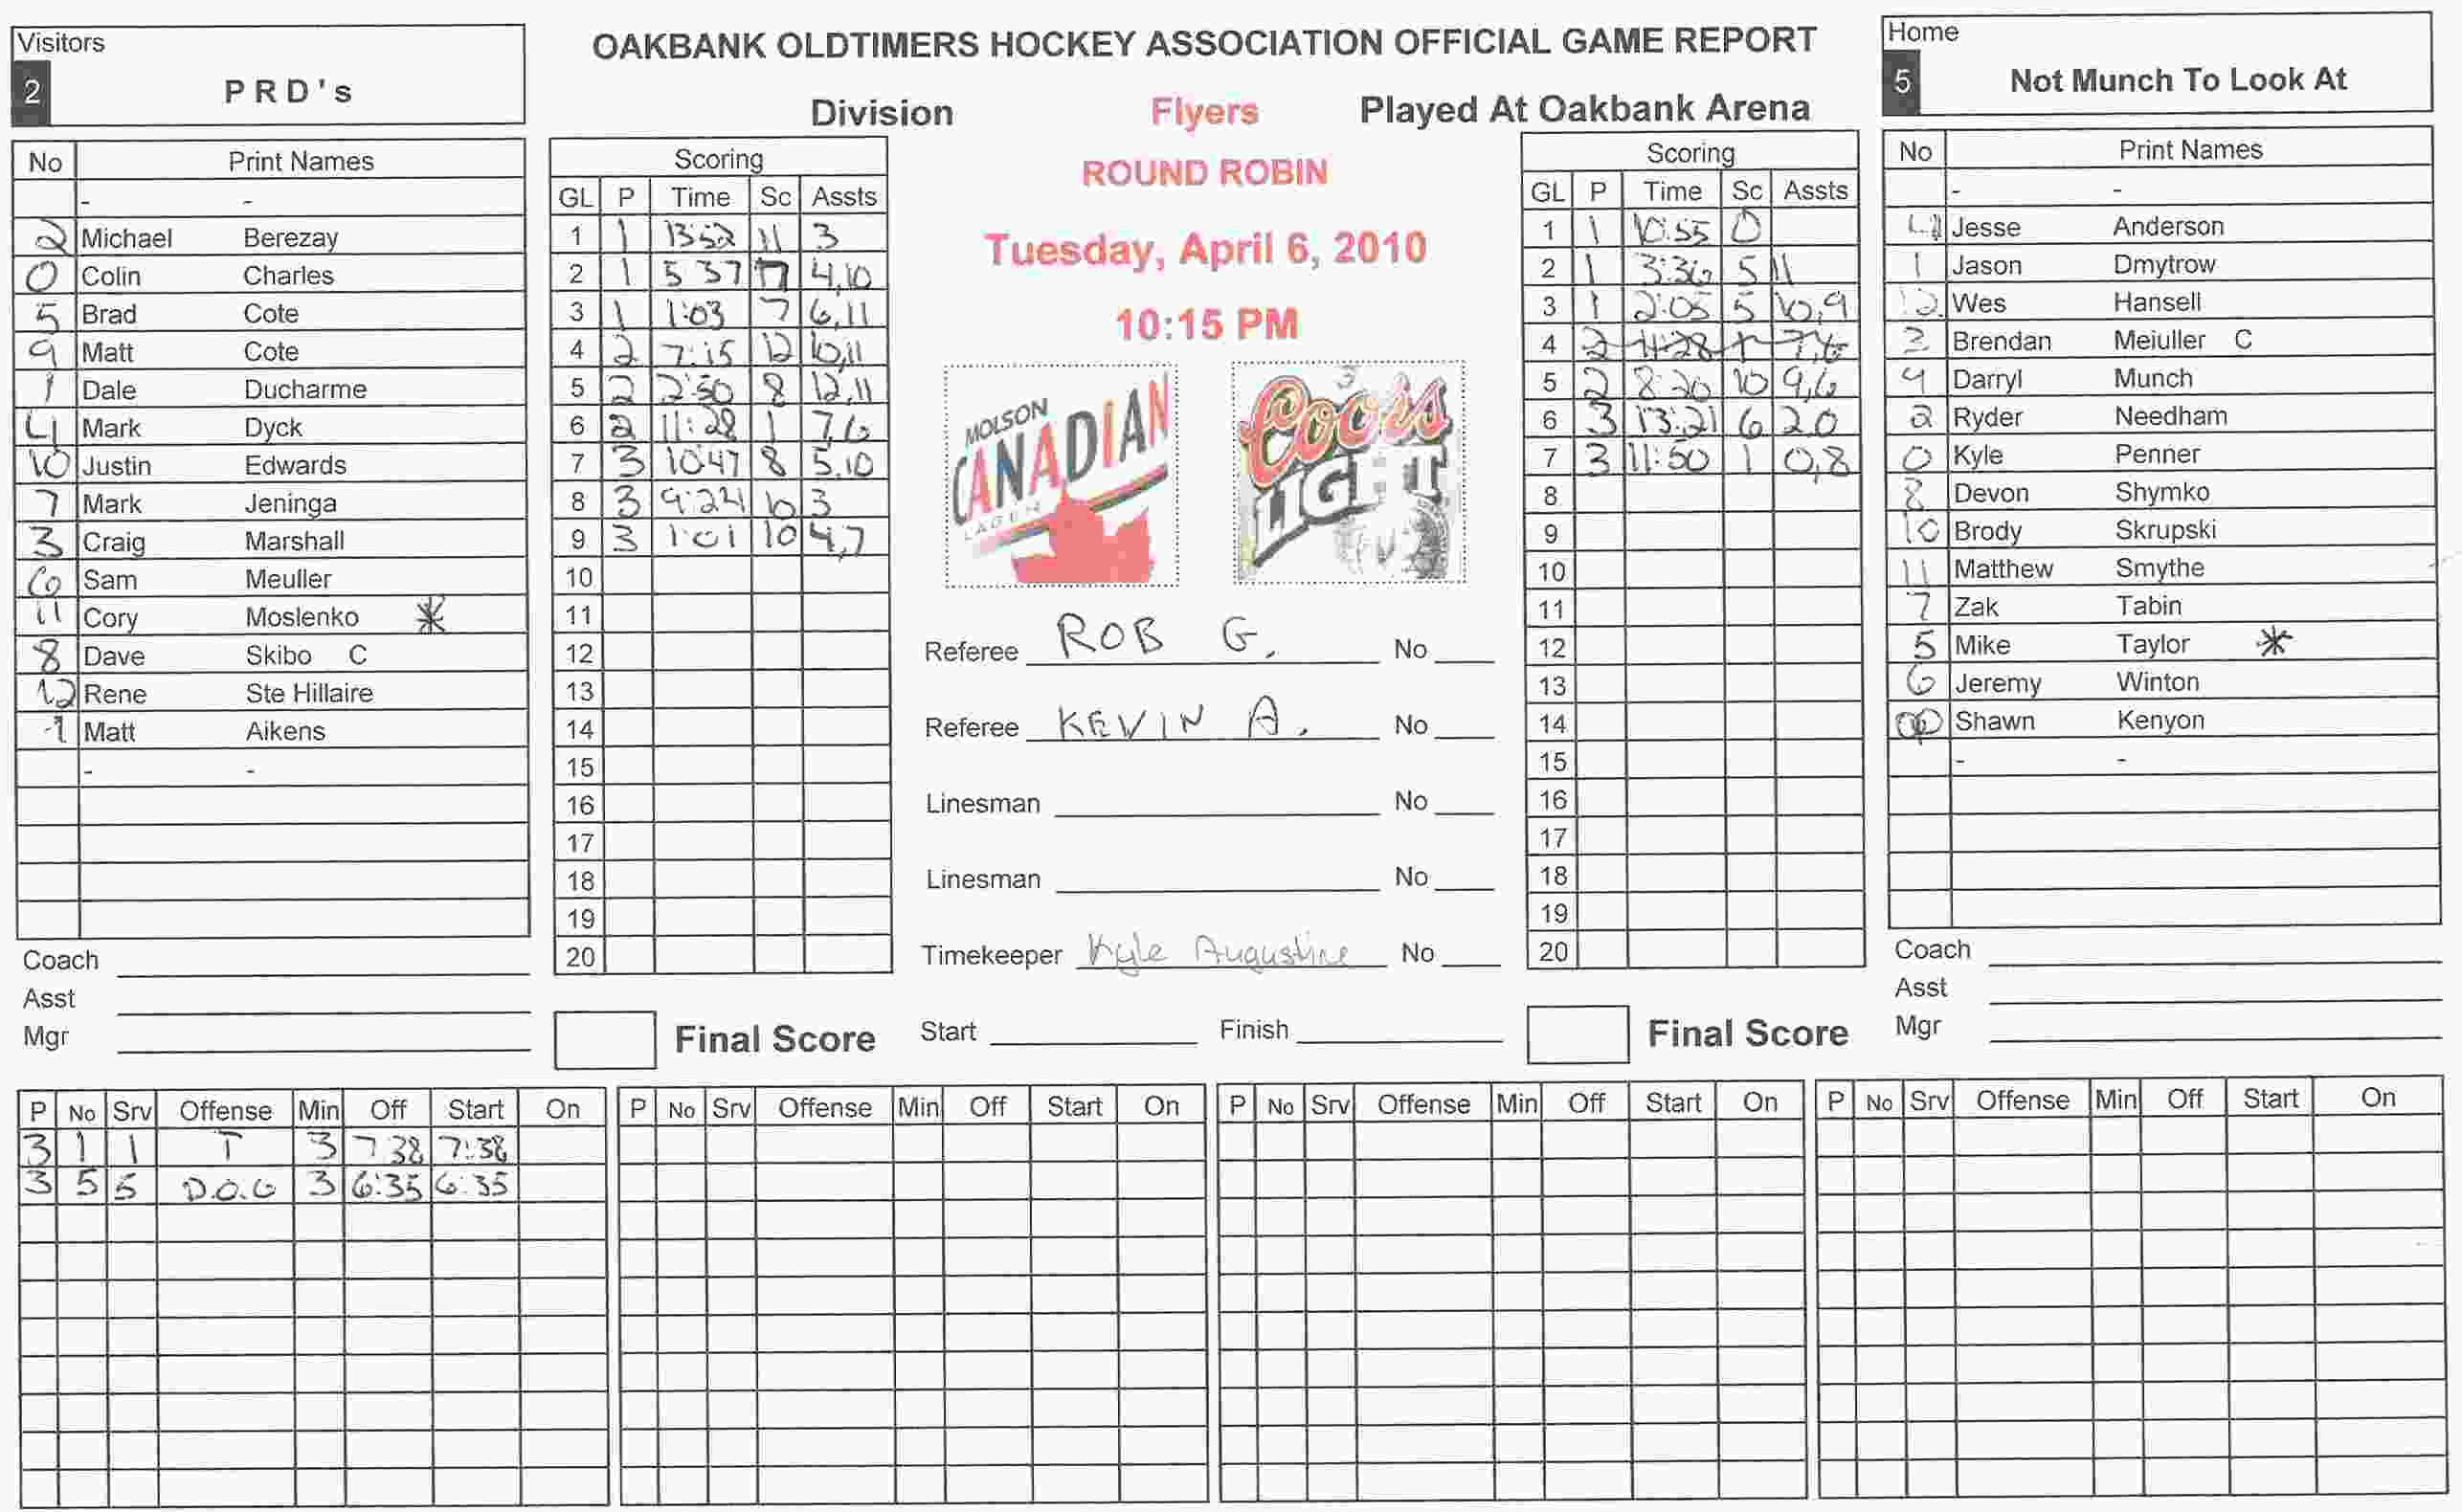 OAKBANK OLDTIMERS HOCKEY ASSOCIATION OFFICIAL GAME REPORT
Visitors
2 PRD's
Home
5 Not Munch To Look At
Division Flyers Played At Oakbank Arena
ROUND ROBIN
Tuesday, April 6, 2010
10:15 PM
No Print Names
- -
2 Michael Berezay
0 Colin Charles
5 Brad Cote
9 Matt Cote
1 Dale Ducharme
4 Mark Dyck
10 Justin Edwards
7 Mark Jeninga
3 Craig Marshall
6 Sam Meuller
11 Cory Moslenko *
8 Dave Skibo C
12 Rene Ste Hillaire
Matt Aikens
- -
Coach
Asst
Mgr
Scoring
GL P Time Sc Assts
1 1 13:52 11 3
2 1 5 37 4,10
3 1 1:03 7 6,11
4 2 7:15 12 10,11
5 2 2:50 8 12,11
6 2 11:28 1 7,6
7 3 10:47 8 5,10
8 3 9:24 10 3
9 3 1:01 10 4,7
10
11
12
13
14
15
16
17
18
19
20
Final Score
MOLSON
CANADIAN
LAGER
Coors
LIGHT
Referee ROB G. No
Referee KEVIN A. No
Linesman No
Linesman No
Timekeeper Kyle Augustine No
Start Finish
Scoring
GL P Time Sc Assts
1 1 10:55 0
2 1 3:36 5 11
3 1 2:05 5 10,9
4 2 11:28 1 7,6
5 2 8:20 10 9,6
6 3 13:21 6 2 0
7 3 11:50 1 0,8
8
9
10
11
12
13
14
15
16
17
18
19
20
Final Score
No Print Names
- -
4 Jesse Anderson
1 Jason Dmytrow
12 Wes Hansell
3 Brendan Meiuller C
9 Darryl Munch
2 Ryder Needham
0 Kyle Penner
8 Devon Shymko
10 Brody Skrupski
11 Matthew Smythe
7 Zak Tabin
5 Mike Taylor *
6 Jeremy Winton
Shawn Kenyon
- -
Coach
Asst
Mgr
P No Srv Offense Min Off Start On
3 1 1 T 3 7 38 7:38
3 5 5 D.O.G 3 6:35 6:35
P No Srv Offense Min Off Start On
P No Srv Offense Min Off Start On
P No Srv Offense Min Off Start On